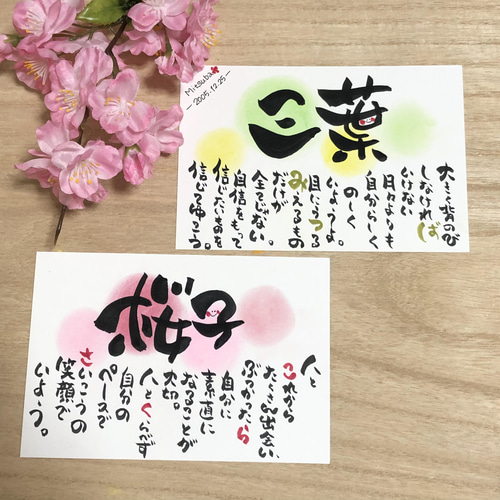 Mitsuba
- 2005.12.25 -
三葉
大きく背のび
しなければ
いけない
日々よりも
自分らしく
いようよ。
目にうつる
みえるもの
だけが
全てじゃない。
自信をもって
信じたいものを
信じてゆこう。
桜子
人と
これから
たくさん出会い、
ぶつかったら
自分に
素直に
なることが
大切。
人とくらべず
自分の
ペースで
さいこうの
笑顔で
いよう。